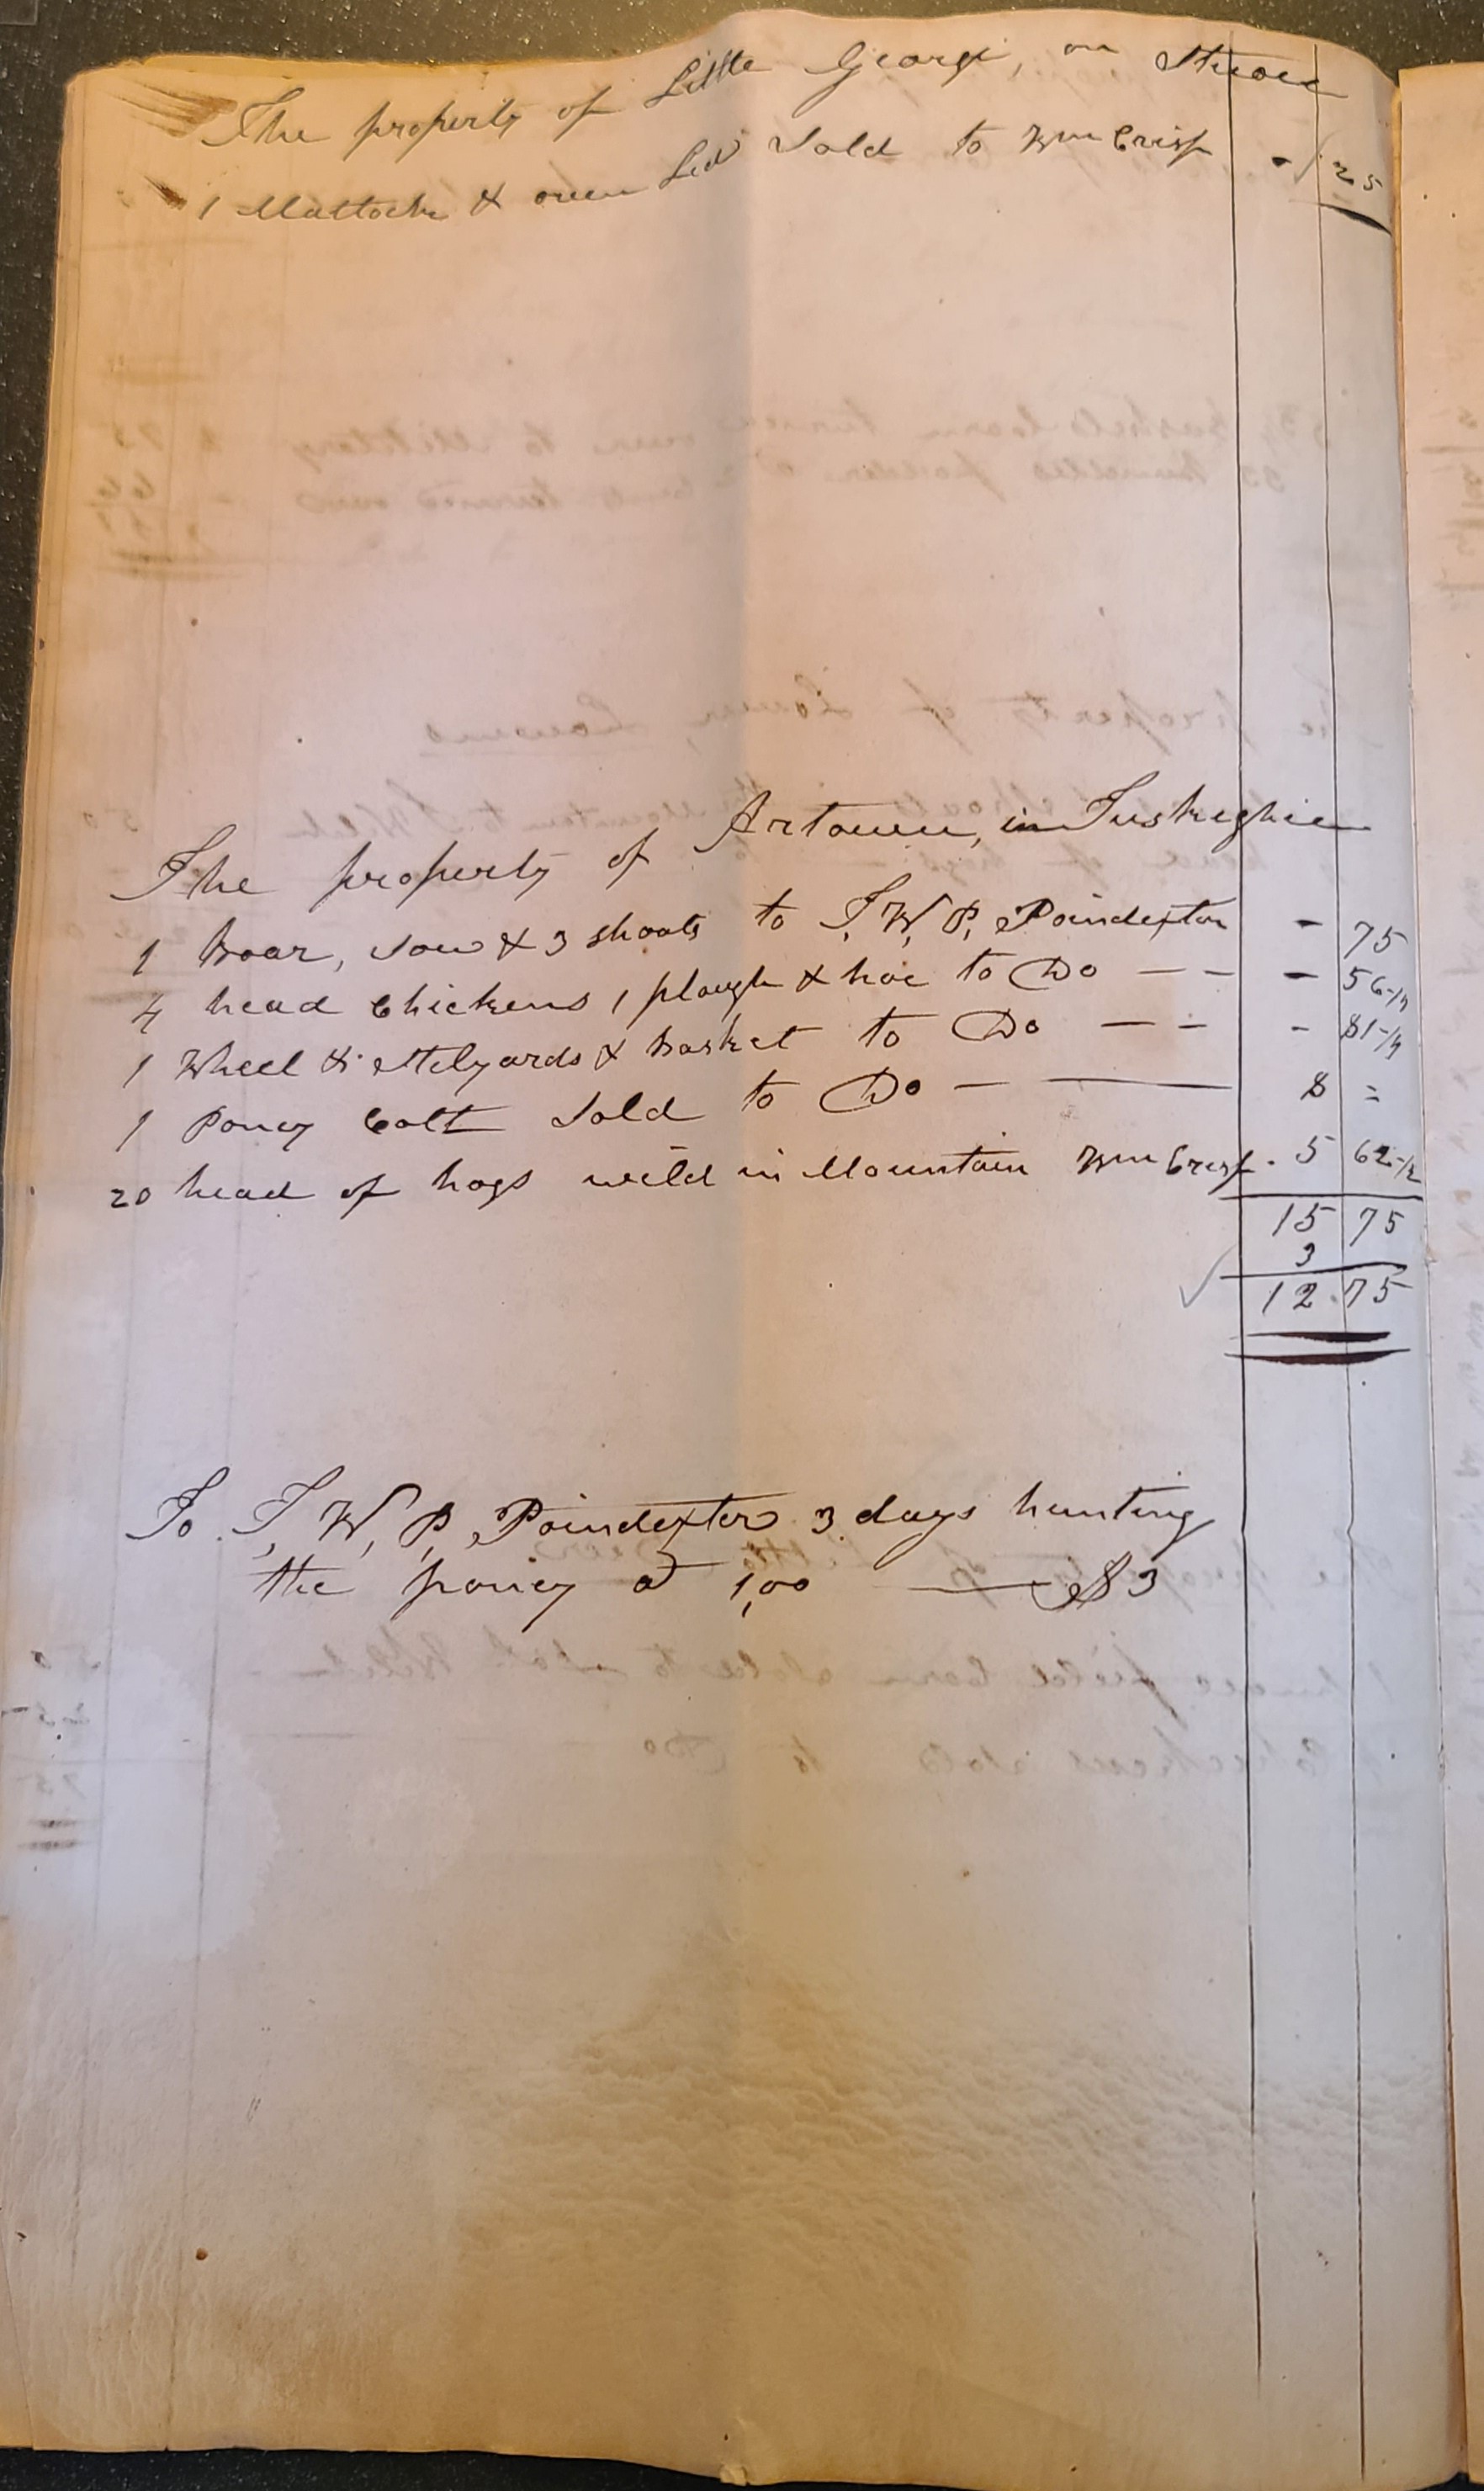 The property of Little George, on Stecoee
1 Mattock & oven Led Sold to Wm Crisp - 25
The property of Artowee, in Tuskeghee
1 boar, sow & 3 shoats to T, W, P, Poindexter - 75
4 head Chickens 1 plough & hoe to Do - - - 56-1/4
1 Wheel & Stelyards & basket to Do - - - 81-/4
1 Poney Colt Sold to Do - - 8 =
20 head of hogs wild in Mountain Wm Crisp - 5 62-1/2
15 75
3
12.75
To T, W, P, Poindexter 3 days hunting
the poney @ 1,00 - $3